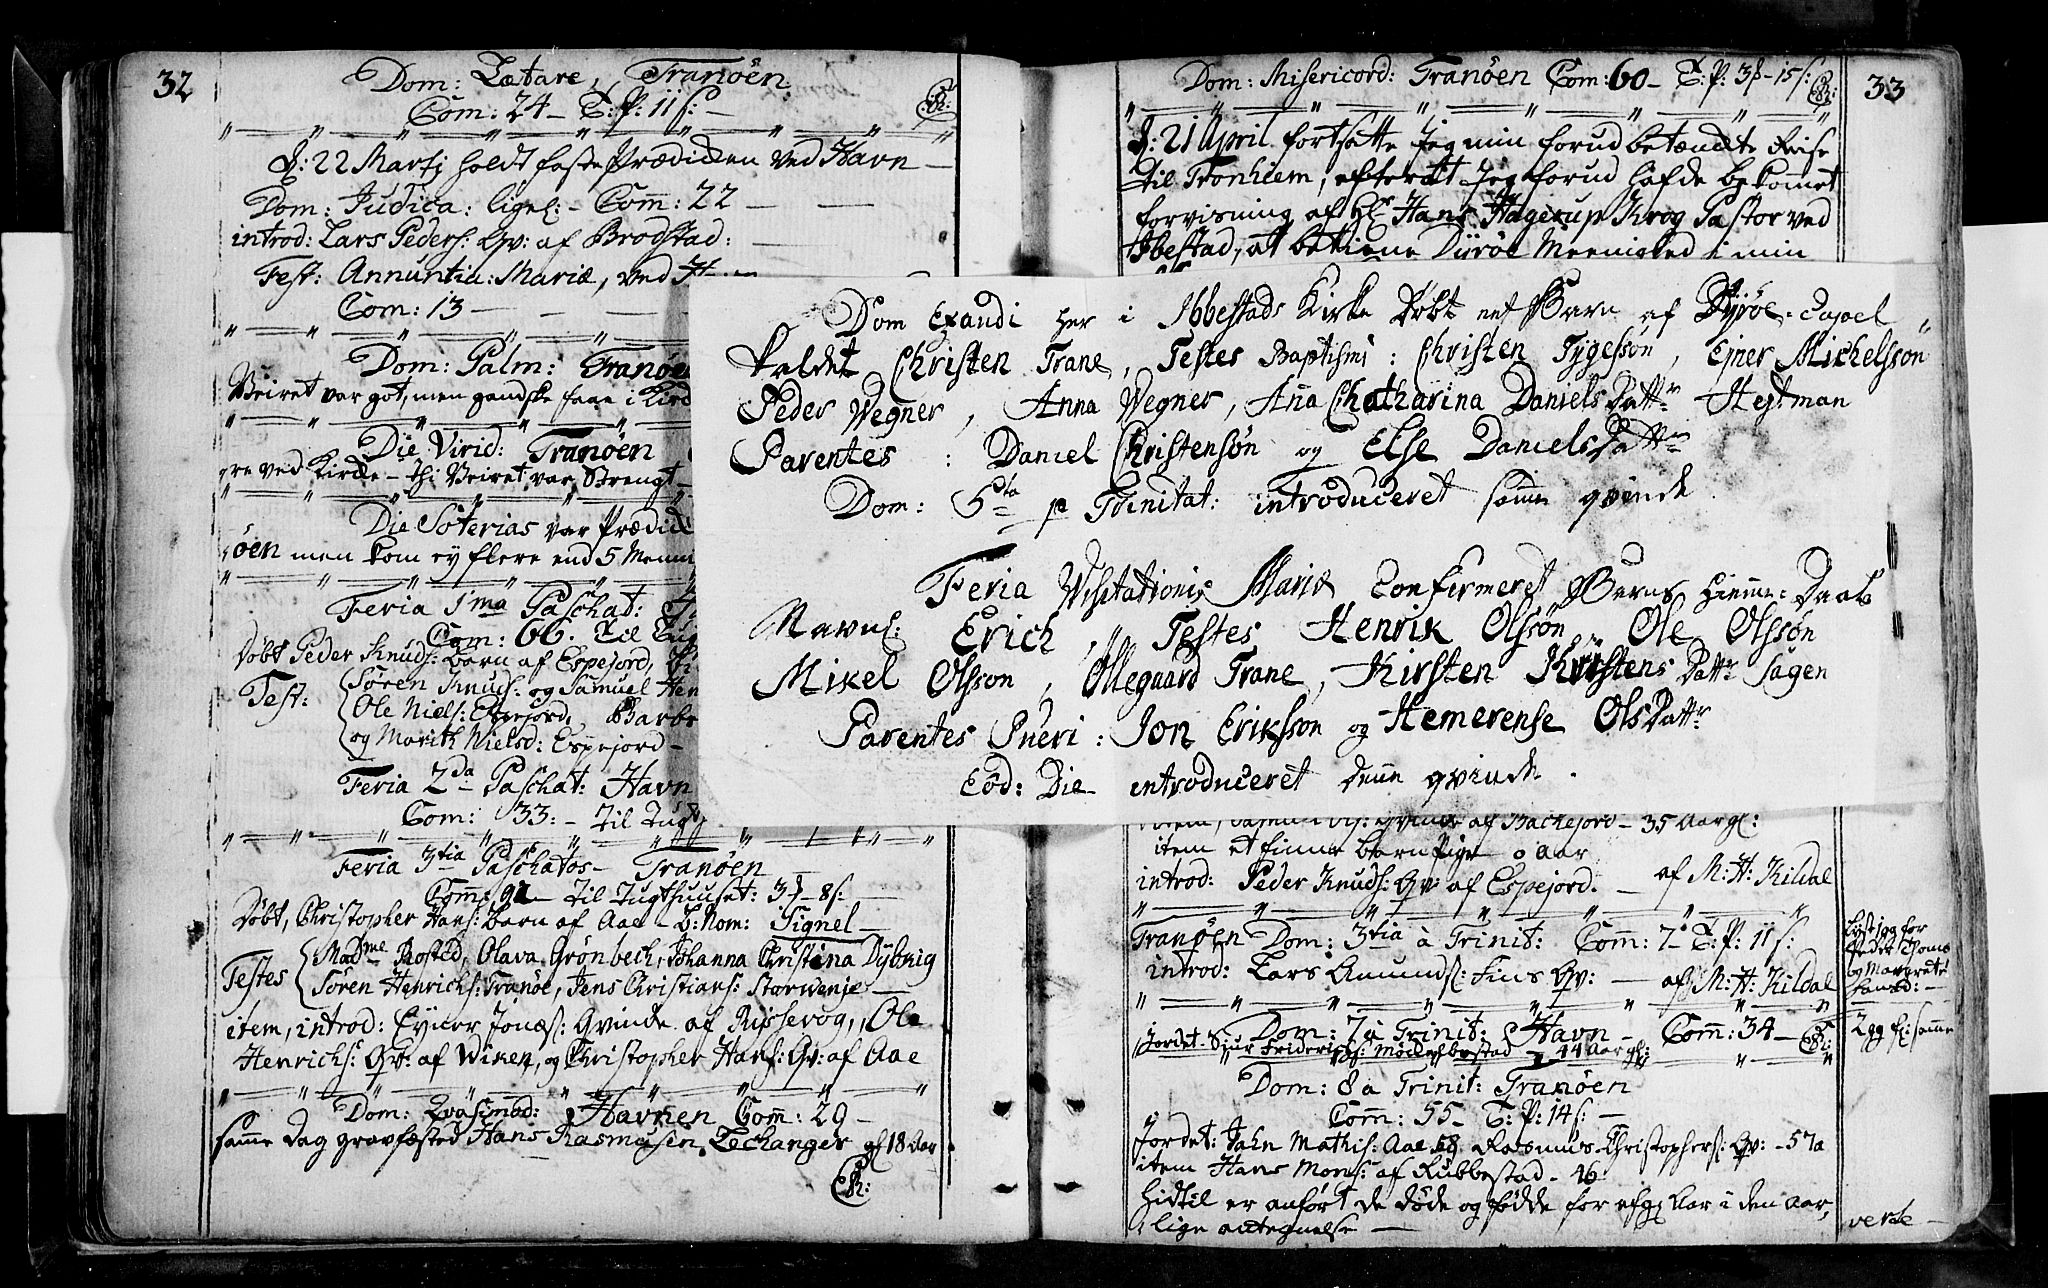 32
Dom: Lætare, Tranöen
Com: 24 - T: P: 11 ſ: -
D: 22 Martj holdt faste Prædicken ved Havn -
Dom: Judica: ligel: - Com̄: 22 -
introd: Lars Peders: Qv: af Brodstad:
Fest: Annuntia: Mariæ, ved H
Com: 13 -
Dom: Palm: Tranöe
Veiret var got, men gandske faae i Kird
Die Virid: Tranöen
gre ved Kircke - thi Veiret var Strengt -
Die Soterias var Prædic
öen men kom ey flere end 5 Menn
Feria 1ma Paschat:
Com: 66. Til Tug
Döbt Peder Knuds: barn af Espejord,
Test: Sören Knuds: og Samuel Hen
Ole Niels: Espejord, Barbr
og Marith Nielsd: Espejord -
Feria 2da Paschat: Havn
Com: 33: - Til Tugt
Feria 3tia Paschatos - Tranöen
Com̄: 91 - Til Tugthuuset: 3 - 8 ſ:
Döbt, Christopher Hans: barn af Aae - b: Nom: Signel -
Testes Madme Rosted, Olava Grönbech, Johanna Christina Dybrig
Sören Henrichs: Tranöe, Jens Christians: Storvenje -
item, introd: Ejner Jonæs: Qvinde af Ryssevog, Ole
Henrichs: Qv: af Wiken, og Christopher Hans: Qv: af Aae
Dom: Qvasimod: Havnen Com̄: 29 -
samme Dag gravfæsted Hans Rasmusen Lechanger gl 18 aar
33
Dom: Misericord: Tranöen Com: 60 - T: P: 3 - 15 ſ:
D: 21 April fortsatte Jeg min forud betændte Reise
til Tronhiem, efterat Jeg forud hafde bekomet
forvisning af Hr Hans Hagerup Krog Pastor ved
Ibestad, at betiene Dyröe Meenighed i min
Dom Exaudi her i Ibbestads Kirke Döbt eet Barn af Dyröe-Capel
kaldet Christen Trane, Testes Baptismi: Christen Tygessön, Ejner Michelssön
Peder Wegner, Anna Wegner, Aña Chatharina Daniels Dattr Hejtman
Parentes: Daniel Christensön og Else Daniels Dattr
Dom: 5ta p Trinitat: introduceret samme qvinde
Feria Visitationis Mariæ Confirmeret Barns Hiemme-Daab
Navnl: Erich, Testes Henrik Olssön, Ole Olssön
Mikel Olsson, Ollegaard Trane, Kirsten Kirstens Dattr Sagen
Parentes Pueri: Jon Eriksson og Hemerense Ols Dattr
Eod: Die introduceret denne qvinde.
Qvinde af Backejord - 35 Aar gl:
item et finne barn Pige - 0 aar
introd: Peder Knuds: Qv: af Espejord. - af M: H: Kildal
Tranöen Dom: 3tia à Trinit: Com̄: 7 T: P: 11 ſ:
introd: Lars Amunds: Fins Qv: - af M: H: Kildal
Dom: 7 à Trinit: Havn - Com̄: 34 -
Jordet Siur Friderichs: Modelbostad - 44 aar gl:
Dom: 8 a Trinit: Tranöen
Com̄: 55 - T: P: 14 ſ: -
Jordet: Jahn Mathis: Aae 58 Rasmus Christophers: Qv: - 57 a
item Hans Mons: af Rubbestad - 46
Hidtil er anført de döde og födde for afg: Aar i den aar,
lige antegnelse -
Lyst 1 gg for
Peder Thoms
og Margrete
Hansd: -
2 gg f: samme
verte -